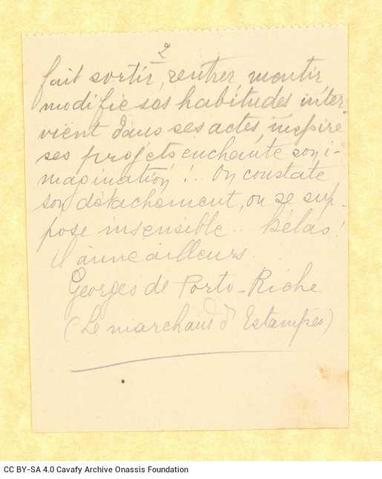 2
fait sortir, rentrer, mentir
modifie ses habitudes inter
vient dans ses actes, inspire
ses projets enchante son i-
magination !.. On constate
son détachement, on se sup-
pose insensible.. hélas!
Il aime ailleurs
Georges de Porto-Riche
(Le marchand d'Estampes)
CC BY-SA 4.0 Cavafy Archive Onassis Foundation